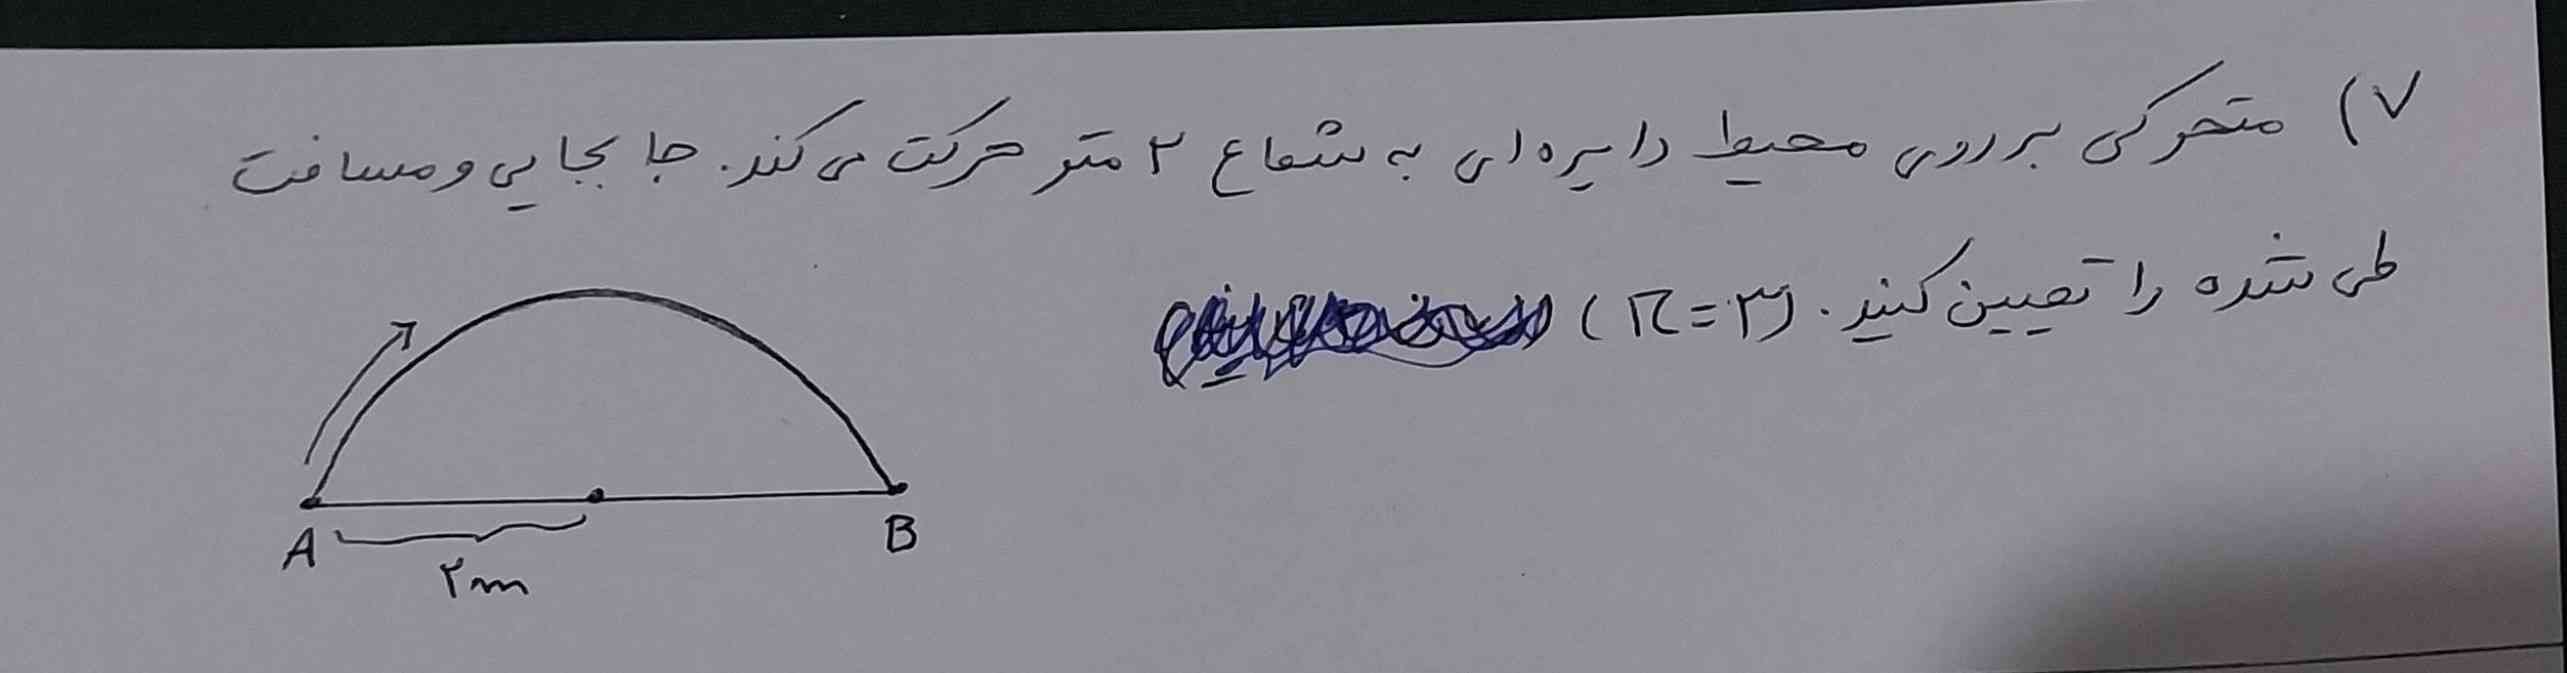 ۷) متحرکی بر روی محیط دایره ای به شعاع ۲ متر حرکت می کند. جا بجایی و مسافت
طی شده را تعیین کنید. (π=۳)
A
B
۲m